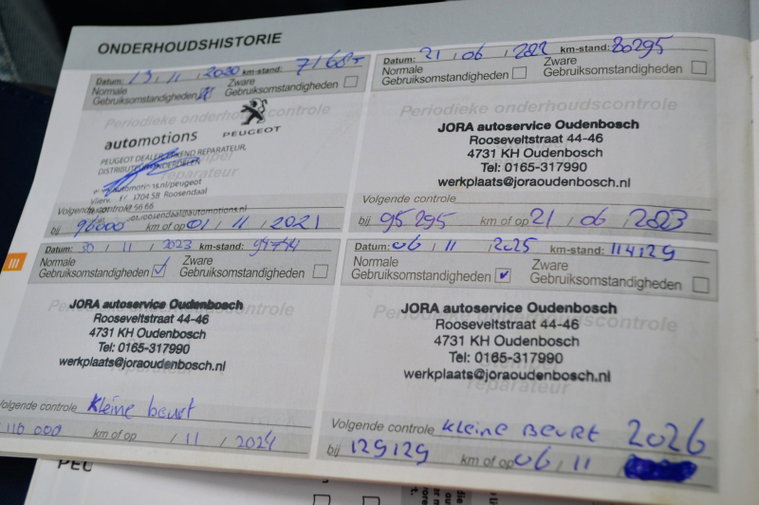 ONDERHOUDSHISTORIE
Datum: 13 / 11 / 2020 km-stand:
Normale Zware
Gebruiksomstandigheden Gebruiksomstandigheden
Periodieke onderhoudscontrole
automotions PEUGEOT
PEUGEOT DEALER, ERKEND REPARATEUR,
Volgende controle
bij 96000 km of op 01 / 11 / 2021
Datum: 21 / 06 / km-stand: 80295
Normale Zware
Gebruiksomstandigheden Gebruiksomstandigheden
Periodieke onderhoudscontrole
JORA autoservice Oudenbosch
Rooseveltstraat 44-46
4731 KH Oudenbosch
Tel: 0165-317990
werkplaats@joraoudenbosch.nl
Volgende controle
bij 95295 km of op 21 / 06 / 2023
III
Datum: 30 / 11 / 2023 km-stand: 94744
Normale Zware
Gebruiksomstandigheden Gebruiksomstandigheden
JORA autoservice Oudenbosch
Rooseveltstraat 44-46
4731 KH Oudenbosch
Tel: 0165-317990
werkplaats@joraoudenbosch.nl
Volgende controle Kleine beurt
110 000 km of op / 11 / 2024
Datum: 06 / 11 / 2025 km-stand: 114129
Normale Zware
Gebruiksomstandigheden Gebruiksomstandigheden
JORA autoservice Oudenbosch
Rooseveltstraat 44-46
4731 KH Oudenbosch
Tel: 0165-317990
werkplaats@joraoudenbosch.nl
Volgende controle KLEINE BEURT 2026
bij 129129 km of op 06 / 11 /